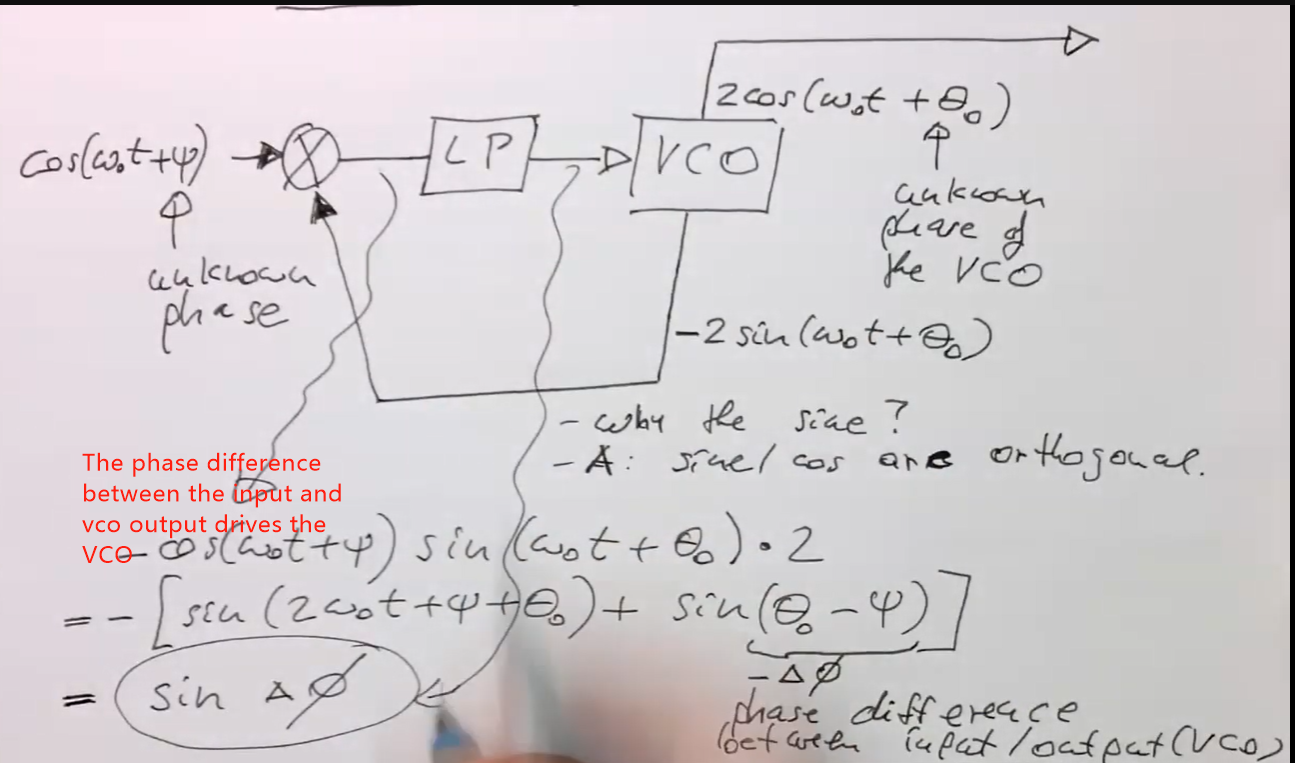 2cos(ω₀t + θ₀)
cos(ω₀t+ψ)
X
LP
VCO
unknown
phase
unknown
phase of
the VCO
-2 sin(ω₀t+θ₀)
- why the sine?
- A: sine/cos are orthogonal.
The phase difference
between the input and
vco output drives the
VCO
- cos(ω₀t+ψ) sin(ω₀t + θ₀) · 2
= - [sin(2ω₀t+ψ+θ₀) + sin(θ₀-ψ)]
-Δϕ
= sin Δϕ
phase difference
between input/output(VCO)